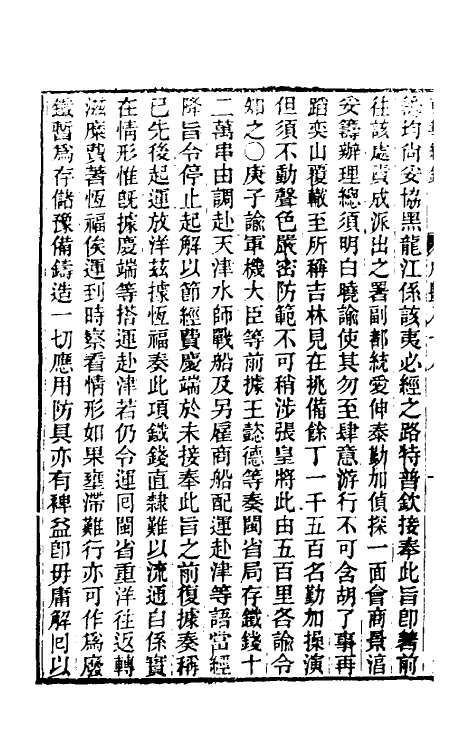 均尚妥協黑龍江係該夷必經之路特普欽接奉此旨卽著前
往該處責成派出之署副都統愛伸泰勤加偵探一面會商景淳
妥籌辦理總須明白曉諭使其勿至肆意游行不可含胡了事再
蹈奕山覆轍至所稱吉林見在挑備餘丁一千五百名勤加操演
但須不動聲色嚴密防範不可稍涉張皇將此由五百里各諭令
知之○庚子諭軍機大臣等前據王懿德等奏閩省局存鐵錢十
二萬串由調赴天津水師戰船及另雇商船配運赴津等語當經
降旨令停止起解以節經費慶端於未接奉此旨之前復據奏稱
已先後起運放洋茲據恆福奏此項鐵錢直隸難以流通自係實
在情形惟旣據慶端等搭運赴津若仍令運囘閩省重洋往返轉
滋糜費著恆福俟運到時察看情形如果壅滯難行亦可作爲廢
鐵暫爲存儲豫備鑄造一切應用防具亦有裨益卽毋庸解囘以